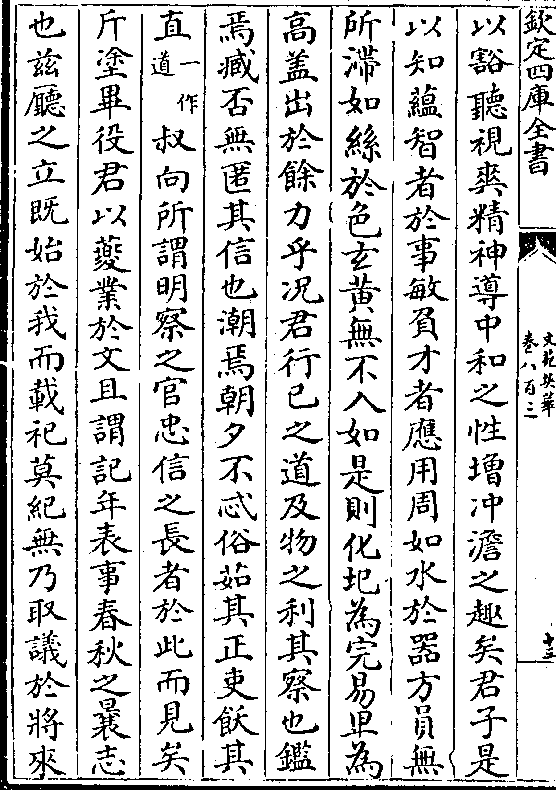 欽定四庫全書
文苑英華
卷八百三
十三
以豁聽視爽精神導中和之性增冲澹之趣矣君子是
以知蘊智者於事敏負才者應用周如水於器方員無
所滯如絲於色玄黄無不入如是則化圮為完易卑為
高盖出於餘力乎况君行已之道及物之利其察也鑑
焉臧否無匿其信也潮焉朝夕不忒俗茹其正吏飫其
直一作道叔向所謂明察之官忠信之長者於此而見矣
斤塗畢役君以藙業於文且謂記年表事春秋之曩志
也兹廳之立既始於我而載祀莫紀無乃取議於將來